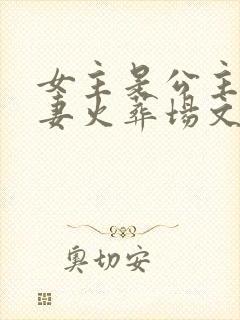 女主是公主
妻火葬场文
奥切安